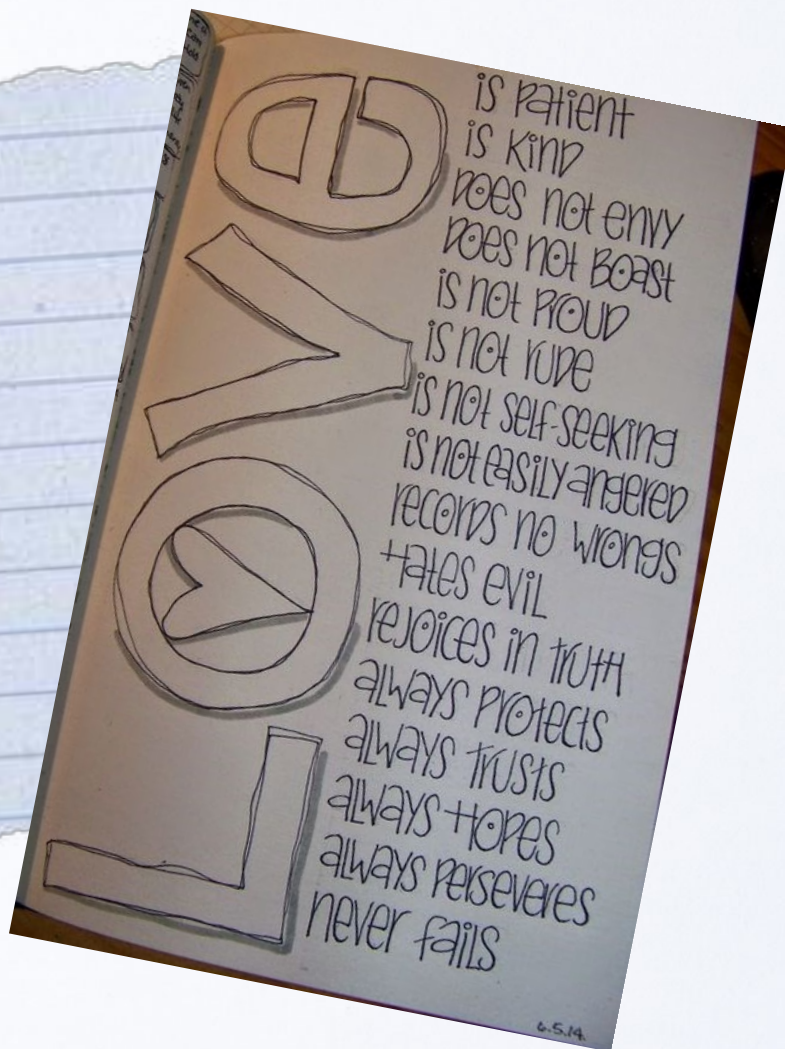 Love
is patient
is kind
does not envy
does not boast
is not proud
is not rude
is not self-seeking
is not easily angered
records no wrongs
Hates evil
rejoices in truth
always protects
always trusts
always Hopes
always perseveres
never fails
6.5.14.